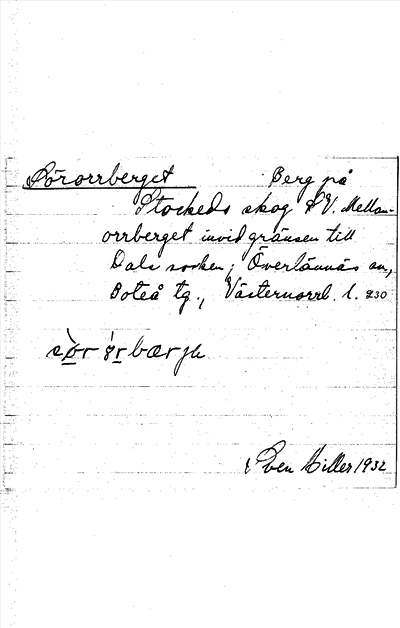 Sörorrberget Berg på
Stockeds skog SV. Mellan-
orrberget invid gränsen till
Dals socken; Överlännäs sn,
Boteå tg., Västernorrl. l. 230
Sven Hiller 1932